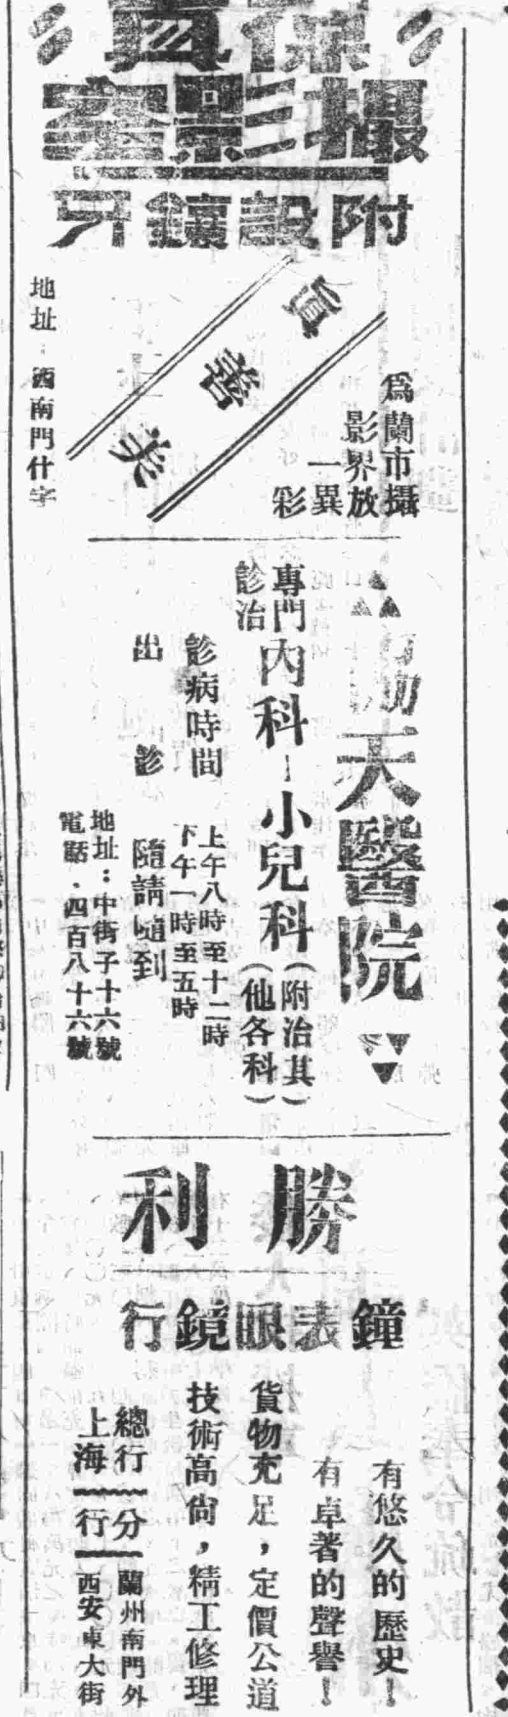 保真
攝影室
附設鑲牙
真善美
為蘭市攝
影界放
一異
彩
地址：西南門什字
天醫院
專門
診治
內科—小兒科
（附治其
他各科）
診病時間
上午八時至十二時
下午一時至五時
出診
隨請隨到
地址：中街子十六號
電話．四百八十六號
勝利
鐘表眼鏡行
有悠久的歷史！
有卓著的聲譽！
貨物充足，定價公道
技術高尚，精工修理
總行
上海
分行
蘭州南門外
西安東大街